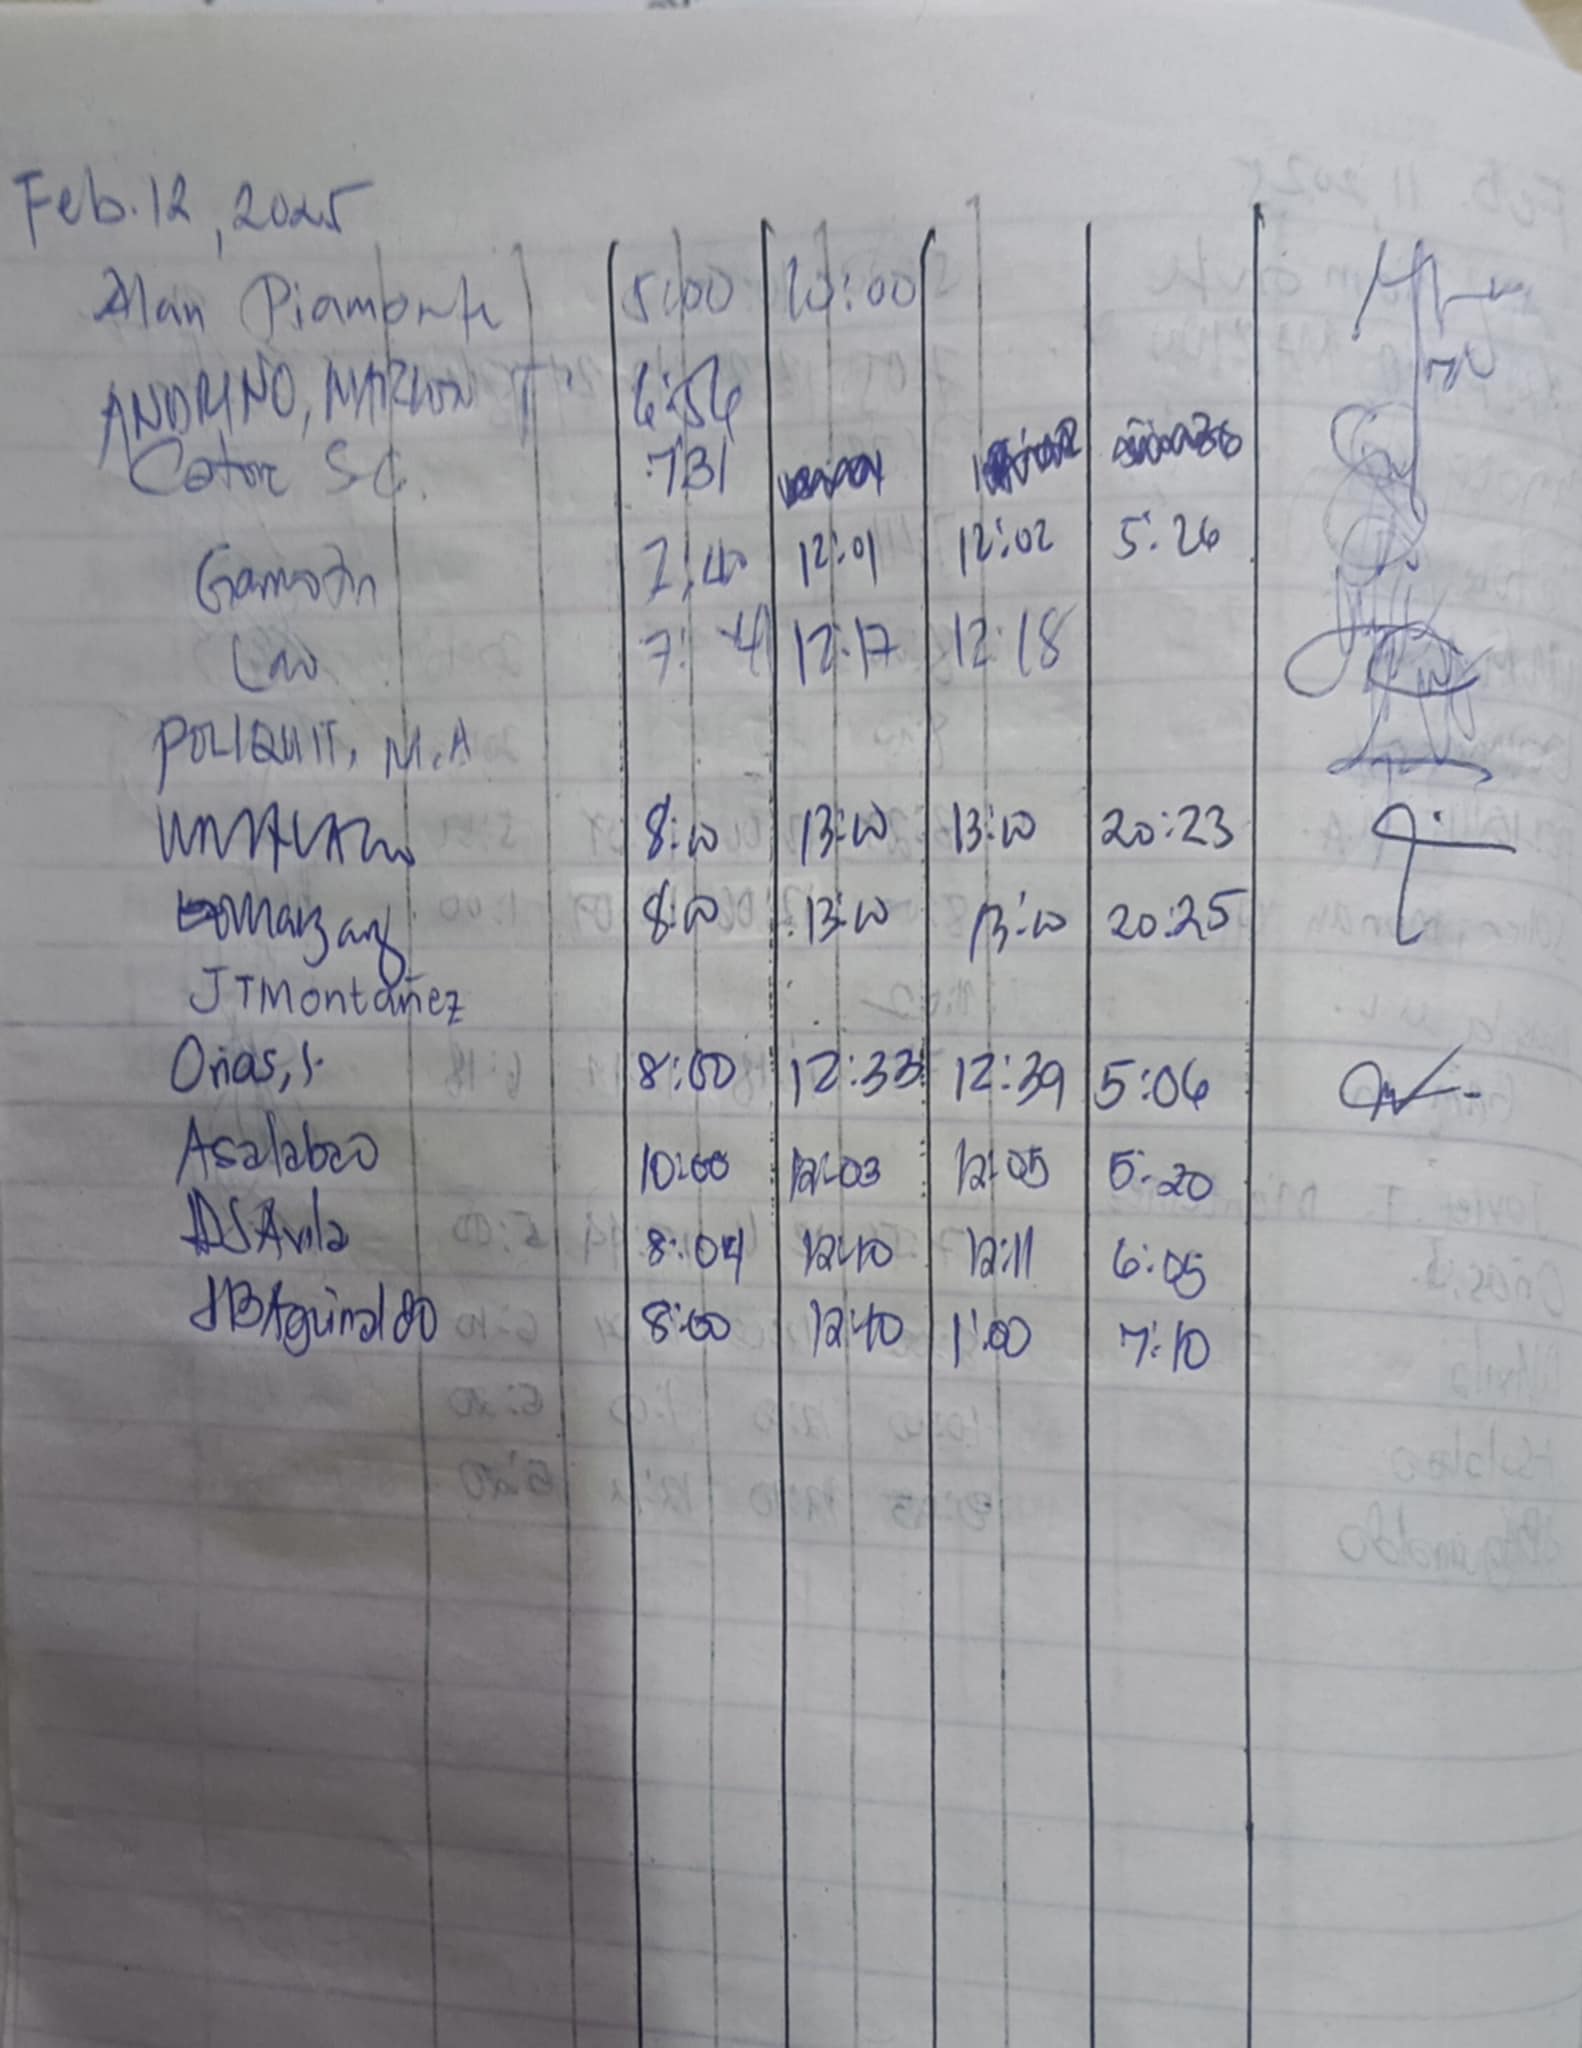 Feb. 12, 2025
Alan Piamonte 5:00 10:00
ANDRINO, MARLON T. 6:56
Cotor S.C. 7:31
Gamotin 7:40 12:01 12:02 5:26
Lao 7:41 12:17 12:18
POLIQUIT, M.A
8:00 13:00 13:00 20:23
8:00 13:00 13:00 20:25
JTMontañez
Oñas, J. 8:00 12:33 12:39 5:06
Asalabao 10:00 12:03 12:05 5:20
Avila 8:04 12:10 12:11 6:05
JBAguinaldo 8:00 12:40 1:00 7:10